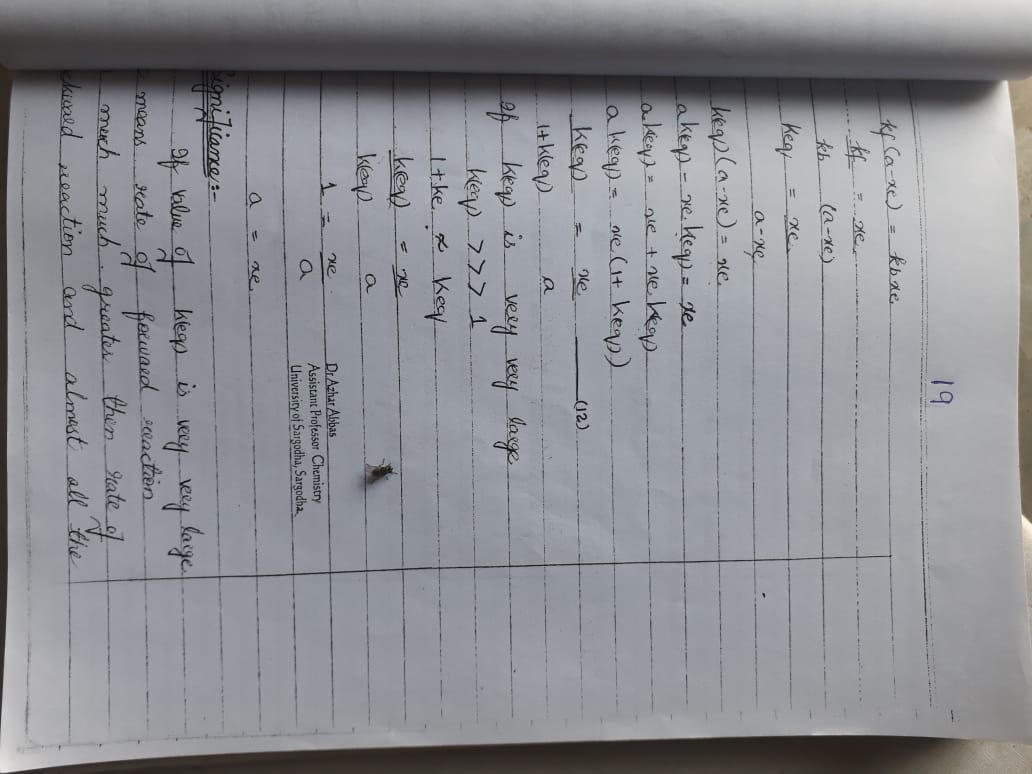 19
kf (a-xe) = kb xe
kf = xe
kb (a-xe)
Keq = xe
a-xe
keq (a-xe) = xe
a keq - xe keq = xe
a keq = xe + xe keq
a keq = xe (1+ keq)
keq = xe (12)
1+keq a
If keq is very very large
keq >>> 1
1+ke ≈ keq
keq = xe
keq a
1 = xe
a
Dr Azhar Abbas
Assistant Professor Chemistry
University of Sargodha, Sargodha
a = xe
Significance:-
If value of keq is very very large
means rate of forward reaction
much much greater then rate of
ckward reaction and almost all the